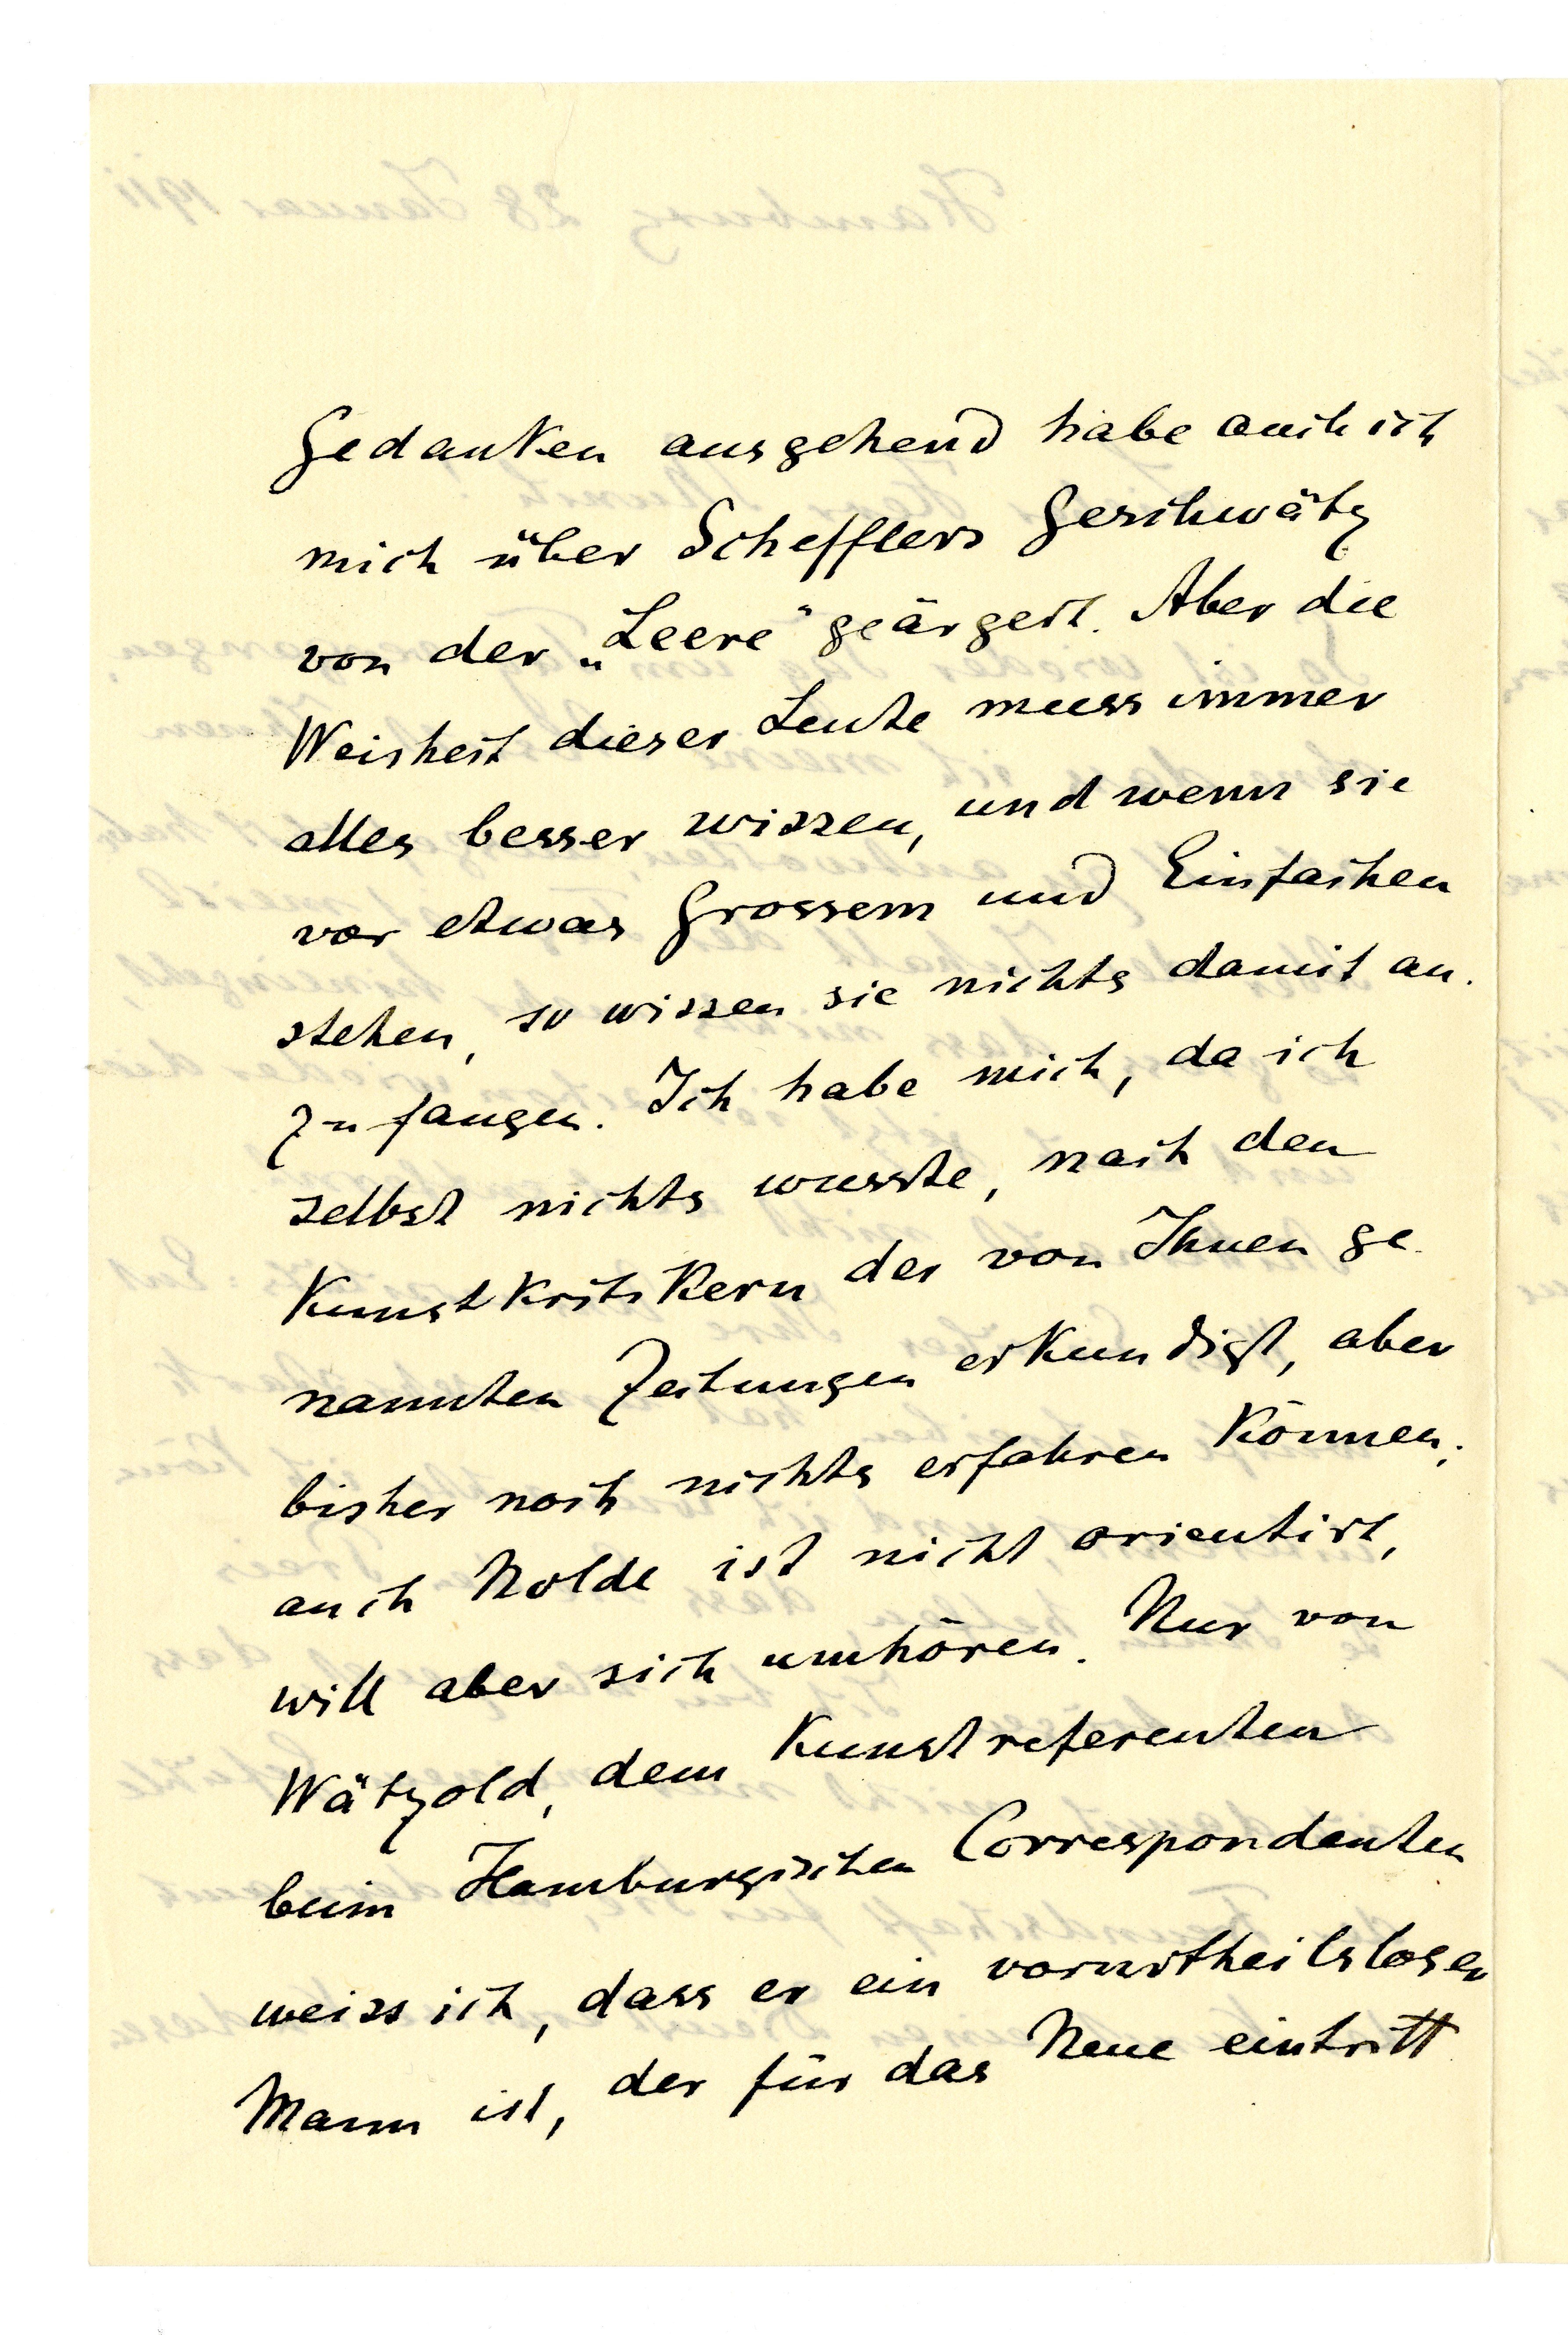 Gedanken ausgehend habe auch ich
mich über Schefflers Geschwätz
von der „Leere" geärgert. Aber die
Weisheit dieser Leute muss immer
alles besser wissen, und wenn sie
vor etwas Grossem und Einfachen
stehen, so wissen sie nichts damit an-
zufangen. Ich habe mich, da ich
selbst nichts wusste, nach den
Kunstkritikern der von Ihnen ge-
nannten Zeitungen erkundigt, aber
bisher noch nichts erfahren können;
auch Nolde ist nicht orientirt,
will aber sich umhören. Nur von
Wätzold, dem Kunstreferenten
beim Hamburgischen Correspondenten
weiss ich, dass er ein vorurtheilsloser
Mann ist, der für das Neue eintritt